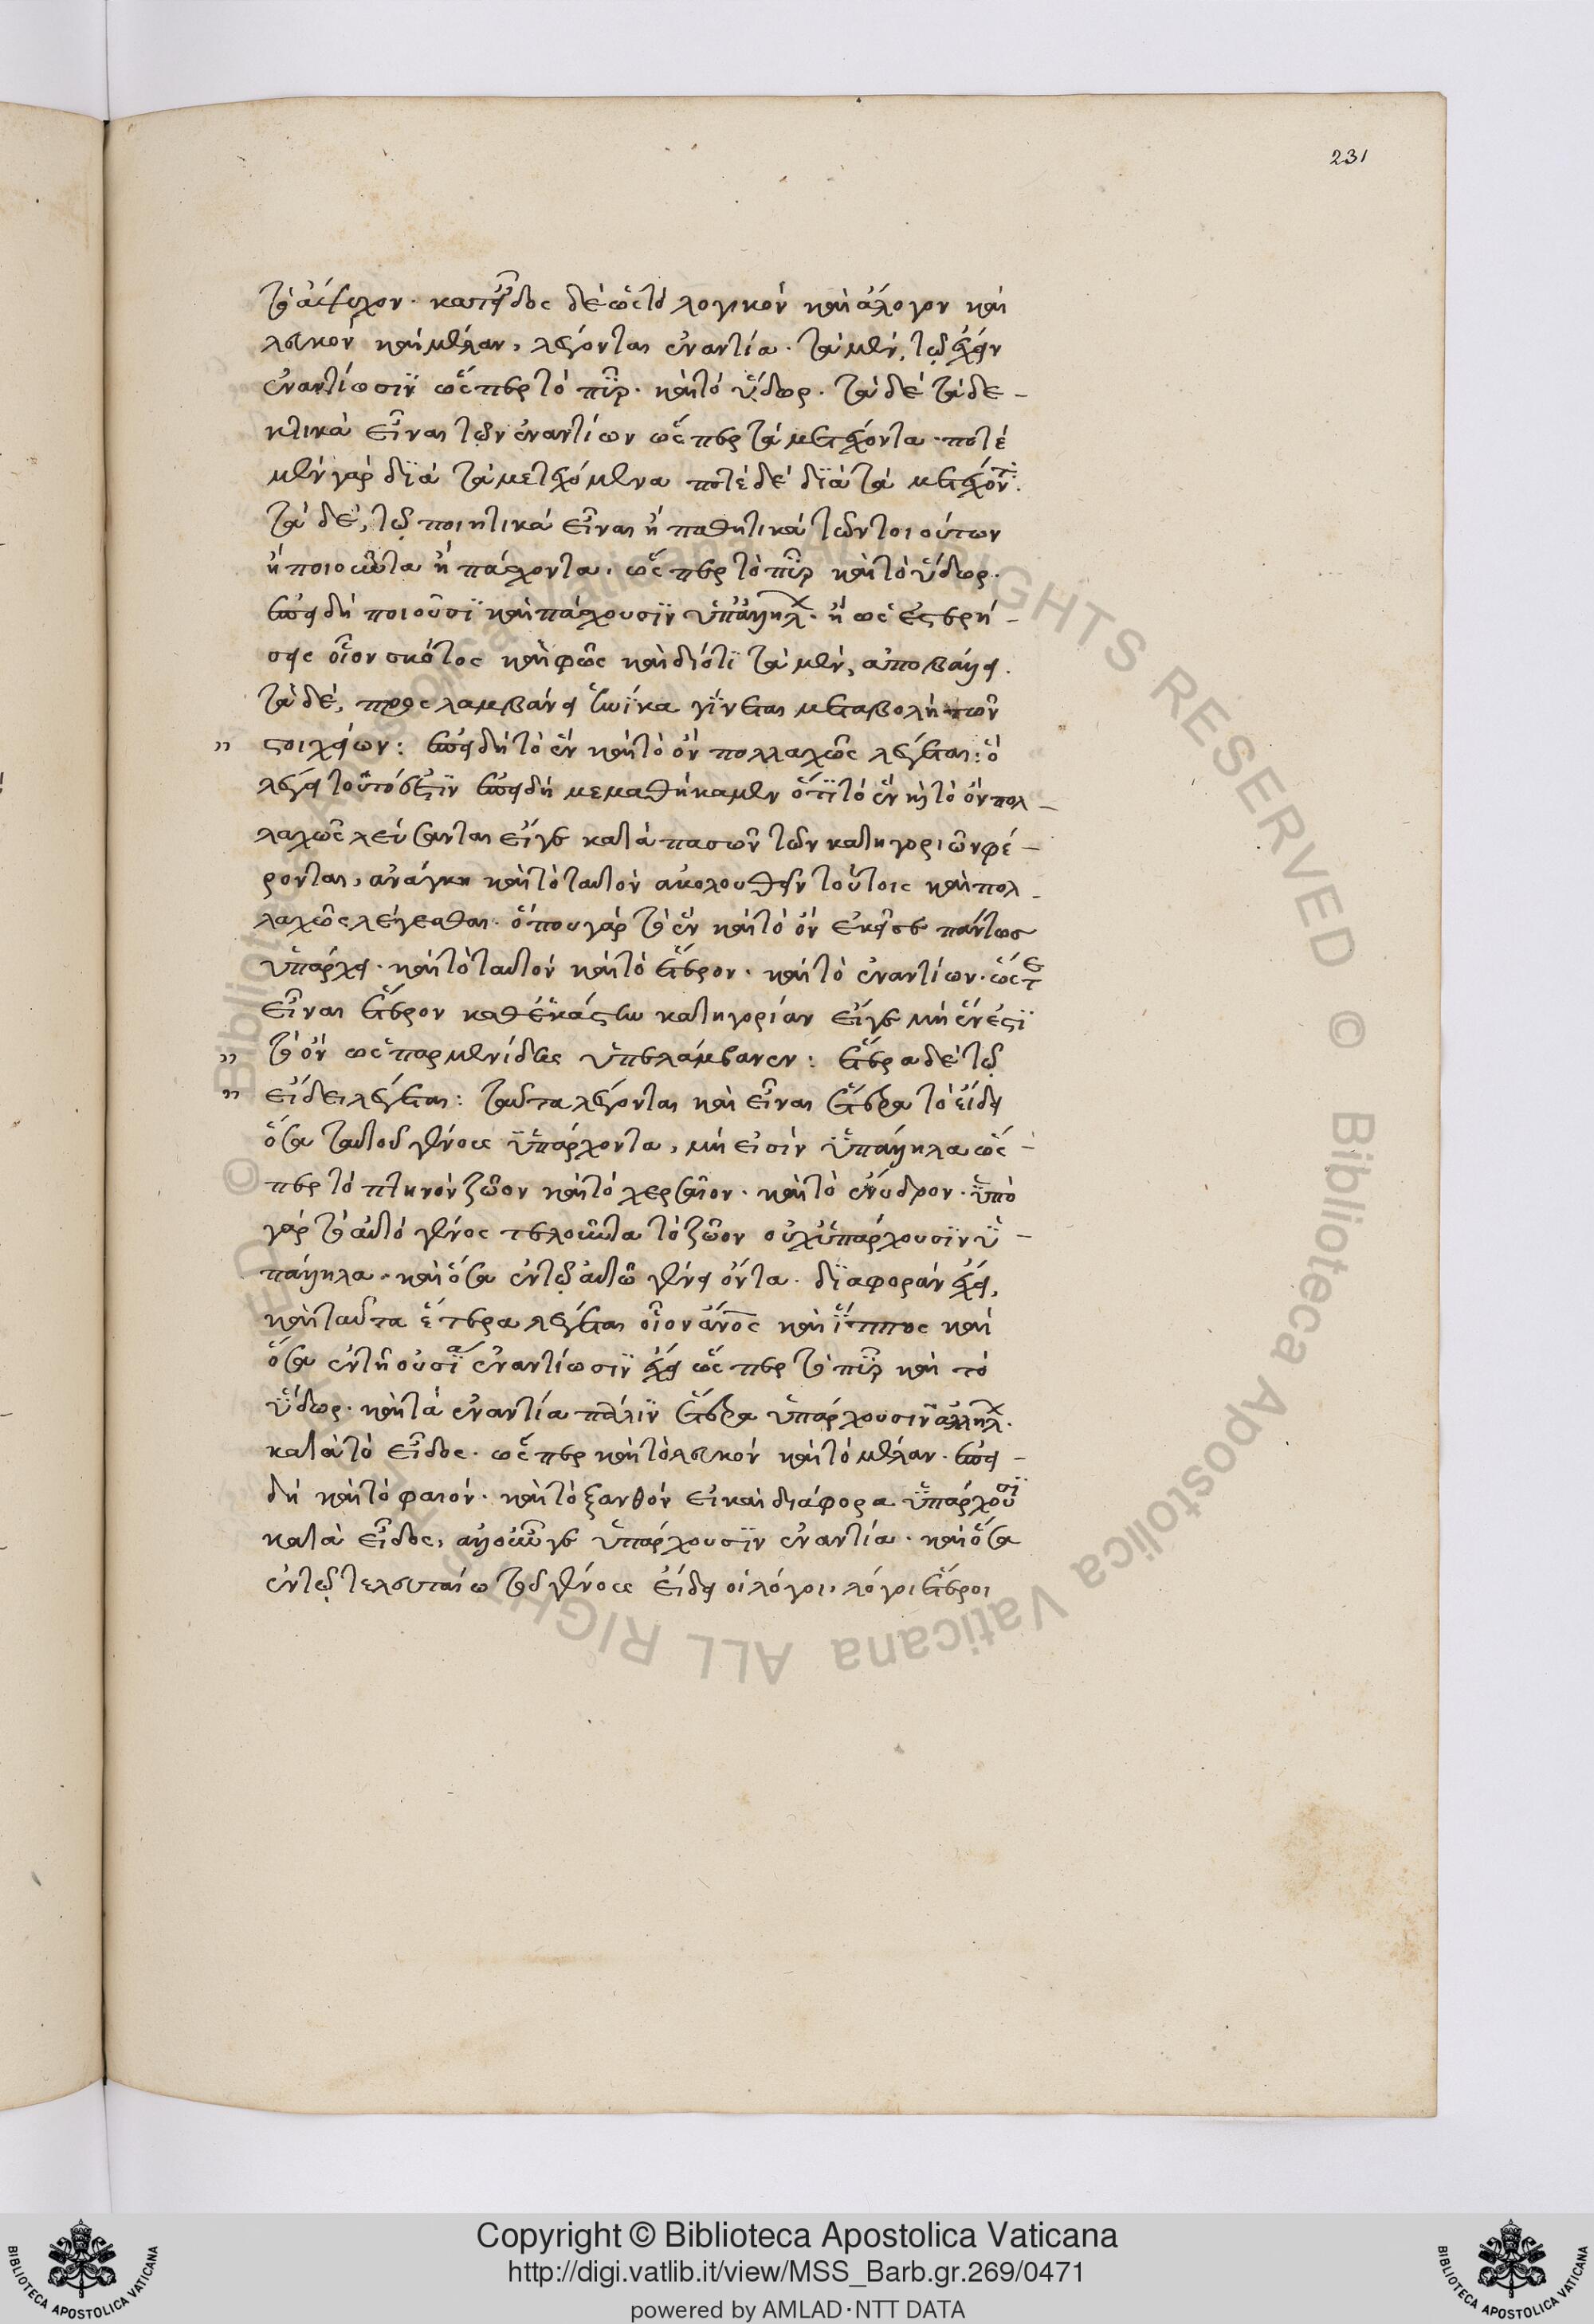 231
τὸ ἄψυχον. κατ' εἶδος δὲ ὡς τὸ λογικὸν καὶ ἄλογον καὶ
λευκὸν καὶ μέλαν, λέγονται ἐναντία. τὰ μὲν, τῷ ἔχειν
ἐναντίωσιν ὥσπερ τὸ πῦρ. καὶ τὸ ὕδωρ. τὰ δὲ τὰ δε-
κτικὰ εἶναι τῶν ἐναντίων ὥσπερ τὰ μετέχοντα. ποτὲ
μὲν γὰρ διὰ τὰ μετεχόμενα ποτὲ δὲ διὰ τὰ μετέχοντ
τὰ δὲ, τῷ ποιητικὰ εἶναι ἢ παθητικὰ τῶν τοιούτων
ἢ ποιοῦντα ἢ πάσχοντα. ὥσπερ τὸ πῦρ καὶ τὸ ὕδωρ.
ἐπειδὴ ποιοῦσι καὶ πάσχουσιν ὑπ' ἀλλήλ. ἢ ὡς ἐστερή-
σεις οἷον σκότος καὶ φῶς καὶ διότι τὰ μὲν, ἀποβάλλει.
τὰ δὲ, προσλαμβάνει ἡνίκα γίνεται μεταβολὴ τῶν
" στοιχείων: ἐπειδὴ τὸ ἓν καὶ τὸ ὂν πολλαχῶς λέγεται: ὃ
λέγει τοῦτό ἐστιν ἐπειδὴ μεμαθήκαμεν ὅτι τὸ ἓν καὶ τὸ ὂν πολ-
λαχῶς λέγονται εἴγε κατὰ πασῶν τῶν κατηγοριῶν φέ-
ρονται, ἀνάγκη καὶ τὸ ταυτὸν ἀκολουθεῖν τούτοις καὶ πολ-
λαχῶς λέγεσθαι. ὅπου γὰρ τὸ ἓν καὶ τὸ ὂν ἐκεῖσε πάντως
ὑπάρχει. καὶ τὸ ταυτὸν καὶ τὸ ἕτερον. καὶ τὸ ἐναντίον. ὥστε
εἶναι ἕτερον καθ' ἑκάστην κατηγορίαν εἴγε μὴ ἕν ἐστι
" τὸ ὂν ὡς παρμενίδης ὑπελάμβανεν: ἕτερα δὲ τῷ
" εἴδει λέγεται: ταῦτα λέγονται καὶ εἶναι ἕτερα τὸ εἴδει
ὅσα ταυτοῦ γένους ὑπάρχοντα, μή εἰσιν ὑπάλληλα ὥσ-
περ τὸ πτηνὸν ζῶον καὶ τὸ χερσαῖον. καὶ τὸ ἔνυδρον. ὑπὸ
γὰρ τὸ αὐτὸ γένος τελοῦντα τὸ ζῶον οὐχ ὑπάρχουσιν ὑ-
πάλληλα. καὶ ὅσα ἐν τῷ αὐτῷ γένει ὄντα. διαφορὰν ἔχει,
καὶ ταῦτα ἕτερα λέγεται οἷον ἄνος καὶ ἵππος καὶ
ὅσα ἐν τῇ οὐσίᾳ ἐναντίωσιν ἔχει ὥσπερ τὸ πῦρ καὶ τὸ
ὕδωρ. καὶ τὰ ἐναντία πάλιν ἕτερα ὑπάρχουσιν ἀλλήλ.
κατὰ τὸ εἶδος. ὥσπερ καὶ τὸ λευκὸν καὶ τὸ μέλαν. ἐπει-
δὴ καὶ τὸ φαιὸν. καὶ τὸ ξανθὸν εἰ καὶ διάφορα ὑπάρχουσι
κατὰ εἶδος, ἀλλ' οὖν γε ὑπάρχουσιν ἐναντία. καὶ ὅσα
ἐν τῷ τελευταίω τοῦ γένους εἴδει οἱ λόγοι, λόγοι ἕτεροι
Copyright © Biblioteca Apostolica Vaticana
http://digi.vatlib.it/view/MSS_Barb.gr.269/0471
powered by AMLAD·NTT DATA